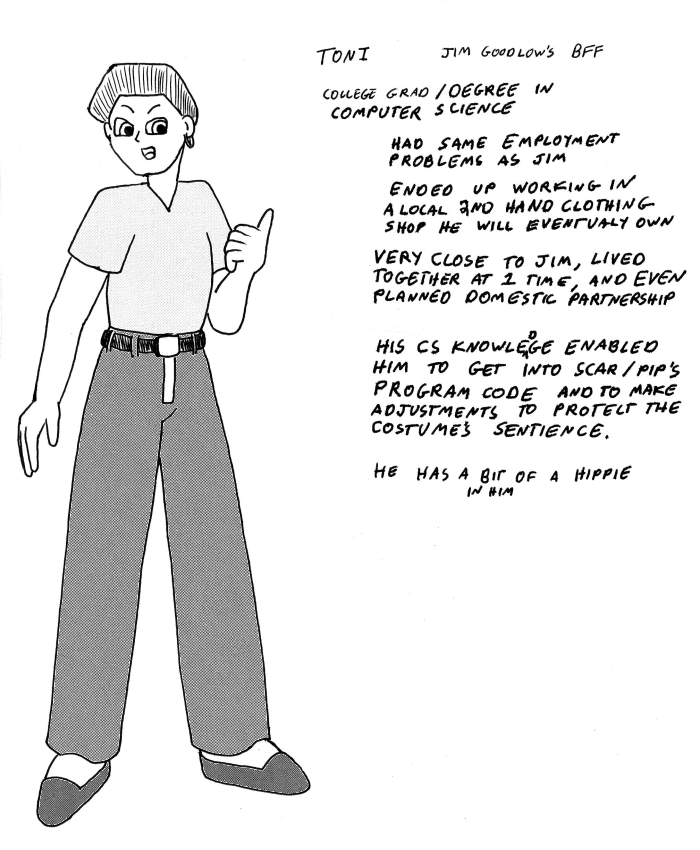 TONI JIM GOODLOW'S BFF
COLLEGE GRAD / DEGREE IN
COMPUTER SCIENCE
HAD SAME EMPLOYMENT
PROBLEMS AS JIM
ENDED UP WORKING IN
A LOCAL 2ND HAND CLOTHING
SHOP HE WILL EVENTUALY OWN
VERY CLOSE TO JIM, LIVED
TOGETHER AT 1 TIME, AND EVEN
PLANNED DOMESTIC PARTNERSHIP
HIS CS KNOWLEDGE ENABLED
HIM TO GET INTO SCAR/PIP'S
PROGRAM CODE AND TO MAKE
ADJUSTMENTS TO PROTECT THE
COSTUME'S SENTIENCE.
HE HAS A BIT OF A HIPPIE
IN HIM